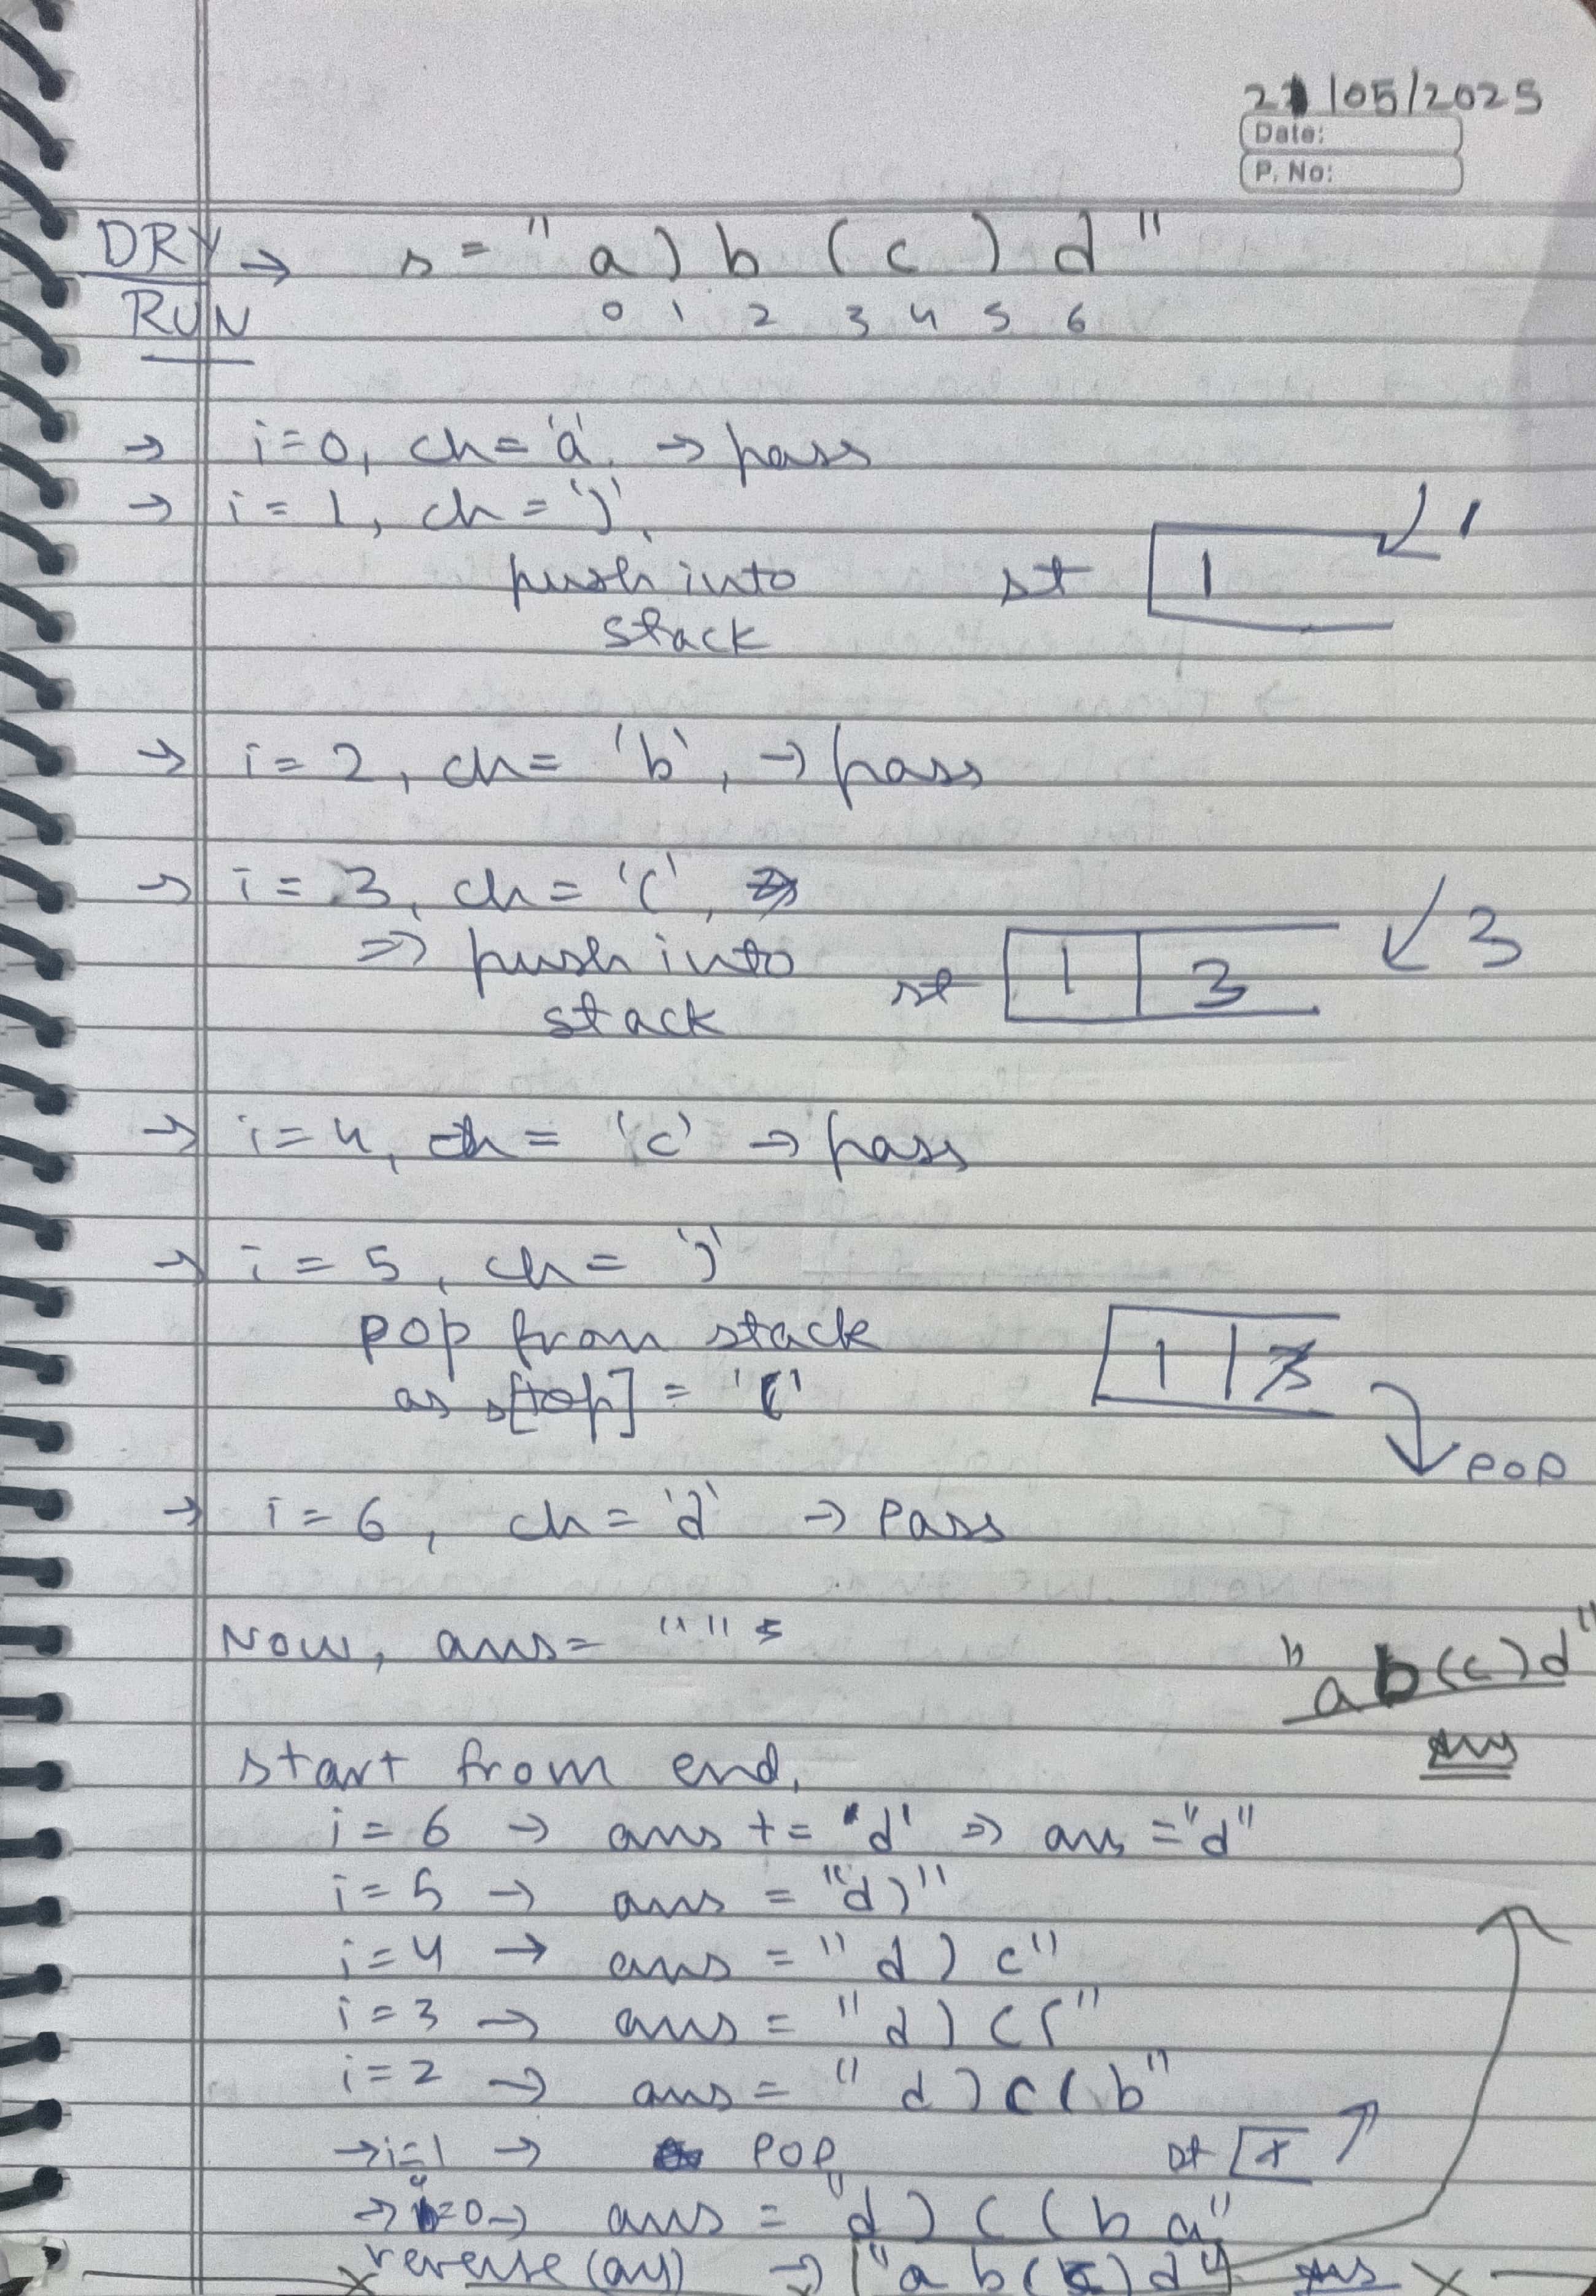 21/05/2025
Date:
P. No:
DRY RUN → s = "a)b(c)d"
0 1 2 3 4 5 6
→ i=0, ch='a' → pass
→ i=1, ch=')'
push into st 1 1
stack
→ i=2, ch='b', → pass
→ i=3, ch='(',
⇒ push into st 1 3 3
stack
→ i=4, ch='c' → pass
→ i=5, ch=')'
pop from stack 1 3
as s[top] = '('
POP
→ i=6, ch='d' → Pass
Now, ans= ""
"ab(c)d"
Ans
start from end,
i=6 → ans += 'd' ⇒ ans="d"
i=5 → ans = "d)"
i=4 → ans = "d)c"
i=3 → ans = "d)c("
i=2 → ans = "d)c(b"
→ i=1 → POP st
→ i=0 → ans = "d)c(ba"
reverse(ans) → "ab(c)d" Ans